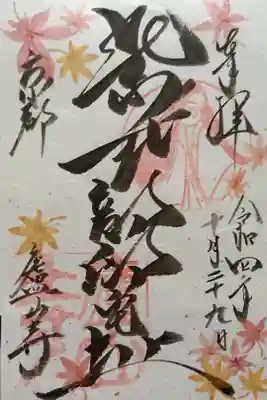 奉拝
令和四年
十月二十九日
紫式部邸宅址
京都
廬山寺